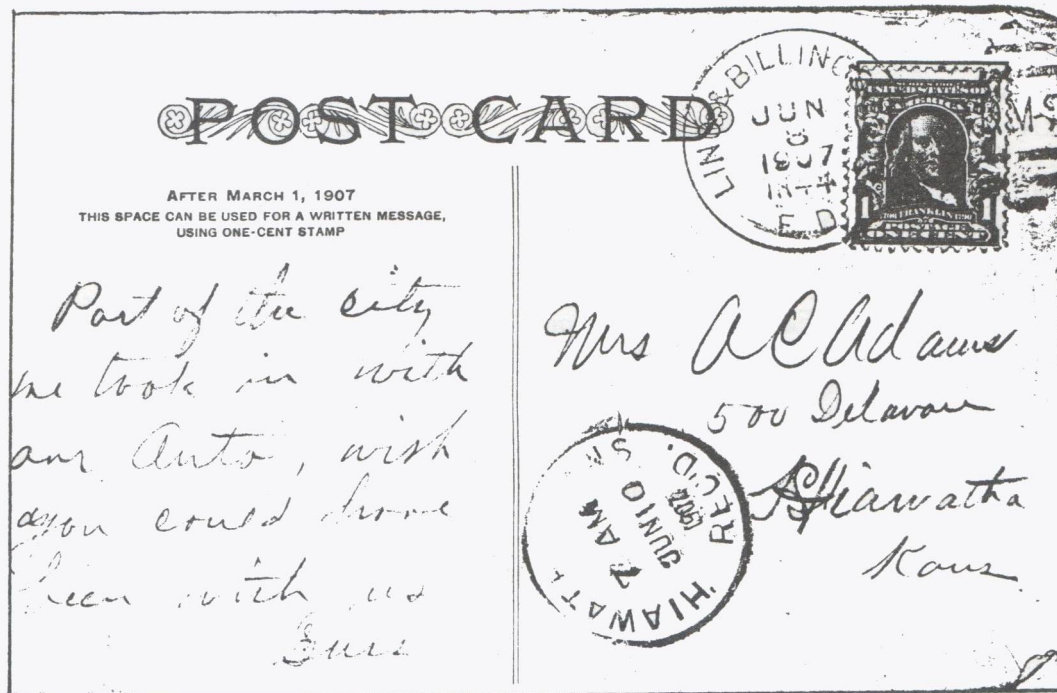 POST CARD
AFTER MARCH 1, 1907
THIS SPACE CAN BE USED FOR A WRITTEN MESSAGE,
USING ONE-CENT STAMP
Part of the city
we took in with
our Auto, wish
you could have
been with us
LIN & BILLING
JUN
8
1907
E D
UNITED STATES OF
FRANKLIN
POSTAGE
1 ONE CENT 1
Mrs A C Adams
500 Delaware
Hiawatha
Kans
HIAWAT
7 AM
JUN 10
1907
REC'D.